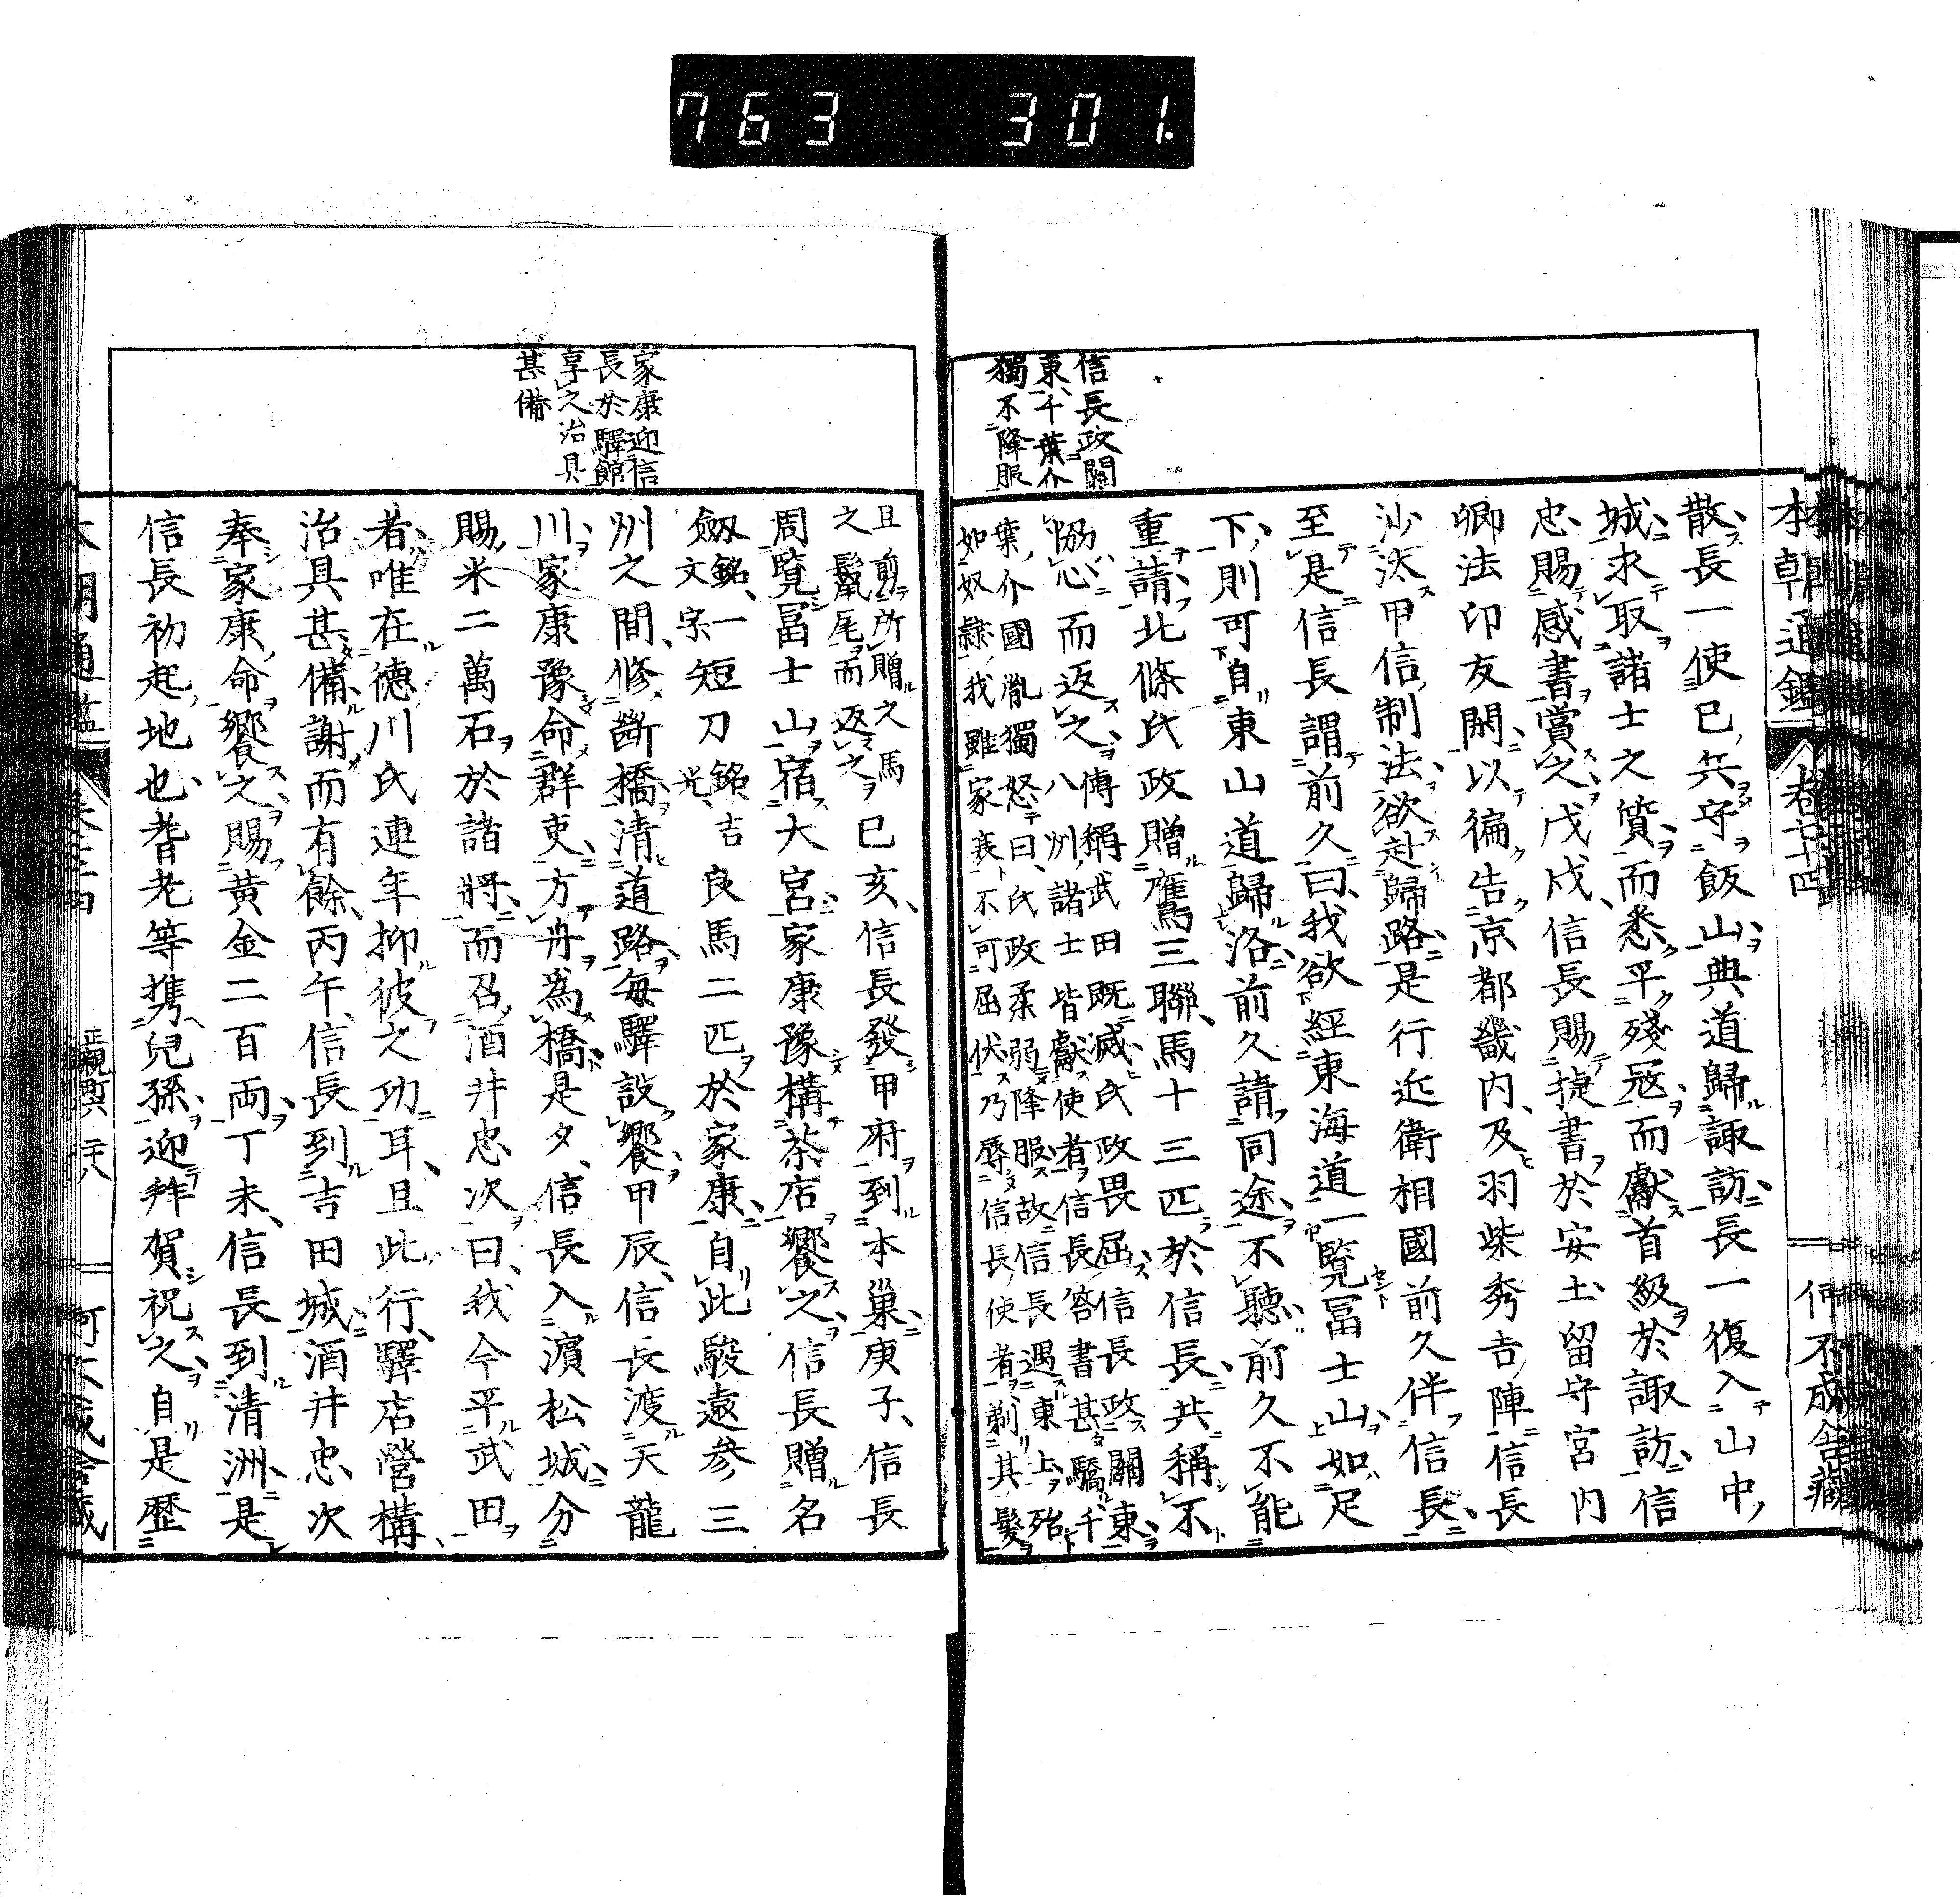 763 301.
本朝通鑑 卷七十四 何不成舍藏
信長政關
東千葉介
獨不降服
散長一使已兵守飯山典道歸諏訪長一復入山中
城求取諸士之質而悉平殘冦而獻首級於諏訪信
忠賜感書賞之戊戌信長賜捷書於安土留守宮内
卿法印友閑以徧告京都畿内及羽柴秀吉陣信長
沙汰甲信制法欲赴歸路是行近衛相國前久伴信長
至是信長謂前久曰我欲經東海道一覽冨士山如足
下則可自東山道歸洛前久請同途不聽前久不能
重請北條氏政贈鷹三聯馬十三匹於信長共稱不
恊心而返之傳稱武田既滅氏政畏屈信長政關東
八州諸士皆獻使者信長答書甚驕千
葉介國胤獨怒曰氏政柔弱降服故信長遇東上殆
如奴隸我雖家衰不可屈伏乃辱信長使者剃其髮
家康迎信
長於驛館
享之治具
甚備
且剪所贈之馬
之鬣尾而返之
已亥信長發甲府到本巢庚子信長
周覽冨士山宿大宮家康豫構茶店饗之信長贈名
劔銘一文字短刀銘吉光良馬二匹於家康自此駿遠參三
州之間修斷橋清道路每驛設饗甲辰信長渡天龍
川家康豫命群吏方舟爲橋是夕信長入濵松城分
賜米二萬石於諸將而召酒井忠次曰我今平武田
者唯在德川氏連年抑彼之功耳且此行驛店營構
治具甚備謝而有餘丙午信長到吉田城酒井忠次
奉家康命饗之賜黃金二百兩丁未信長到清洲是
信長初起地也耆老等携兒孫迎拜賀祝之自是歴
正親町六 二十八